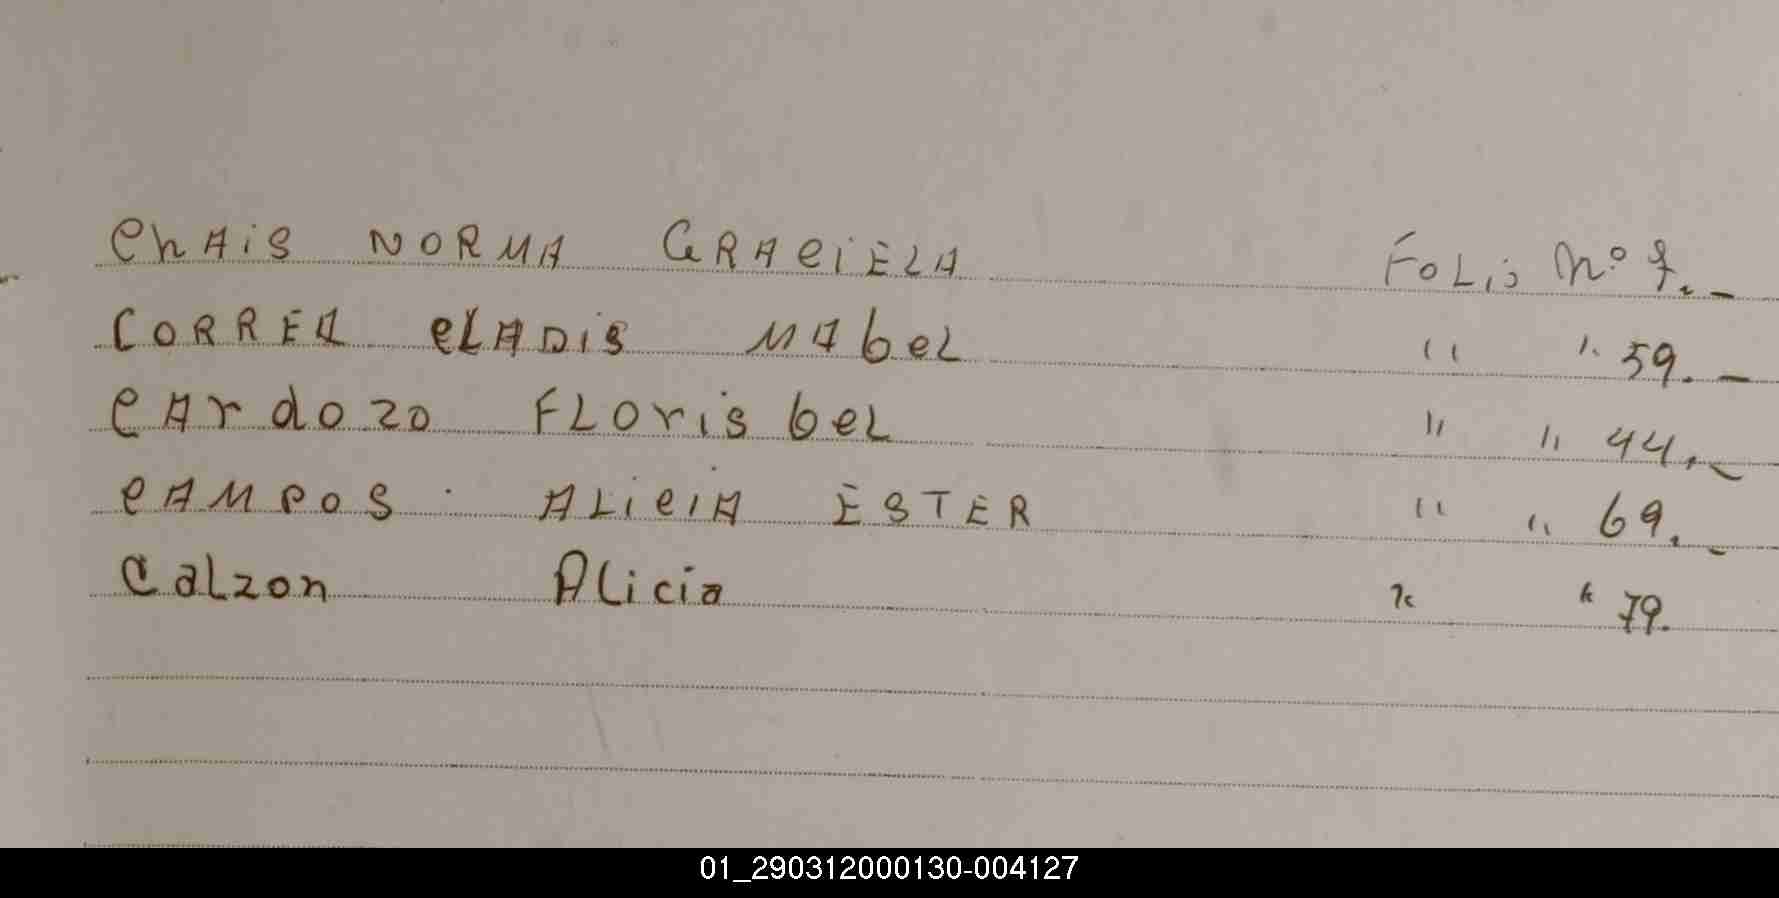 Chais NORMA GRACIELA Folio Nº 9. -
CORREA GLADIS MABEL " " 59. -
CArdozo FLOris bEL " " 44. -
CAMPOS. ALICIA ESTER " " 69. -
Calzon Alicia " " 79.
01_290312000130-004127